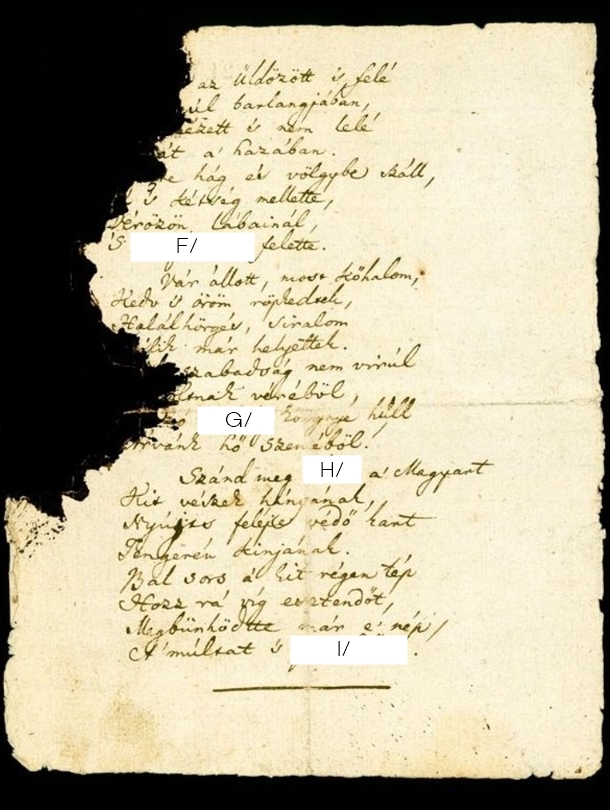 az üldözött 's felé
úl barlangjában,
nézett 's nem lelé
át a' hazában.
re hág és völgybe száll,
's kétség mellette,
Vérözön lábainál,
'S F/ felette.
Vár állott, most kőhalom,
Kedv 's öröm röpkedtek,
Halálhörgés, siralom
már helyettek.
szabadság nem virúl
véréből,
G/ könnye hull
hő szeméből!
Szánd meg H/ a' Magyart
Kit vészek hányának,
Nyújts feléje védő kart
Tengerén kinjának.
Bal sors a' kit régen tép
Hozz rá víg esztendőt,
Megbünhödte már e' nép
A' múltat 's I/ .